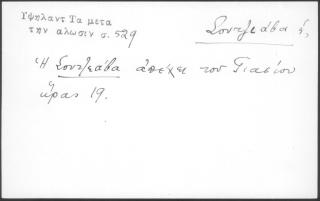 Υψηλαντ Τα μετα
την αλωσιν σ. 529
Σουτζεάβα ἡ,
Ἡ Σουτζεάβα ἀπέχει τοῦ Γιασίου
ὥρας 19.